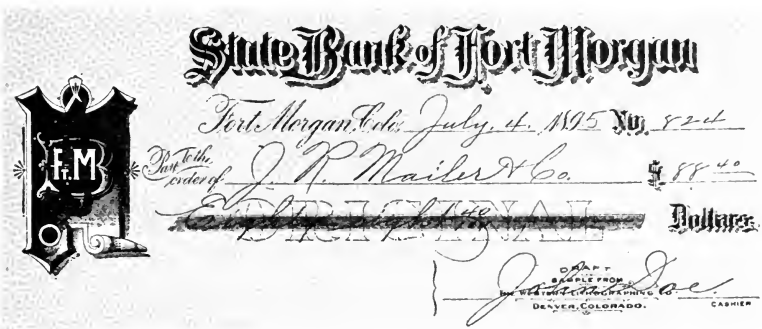 State Bank of Fort Morgan
Fort Morgan, Colo. July. 4. 1895 No. 824
Ft. M B
Pay to the order of J. R. Mailer & Co. $ 88 40
Eighty eight 40 Dollars.
ORIGINAL
John Doe
DRAFT
SAMPLE FROM
THE WESTERN LITHOGRAPHING CO.
DENVER, COLORADO.
CASHIER